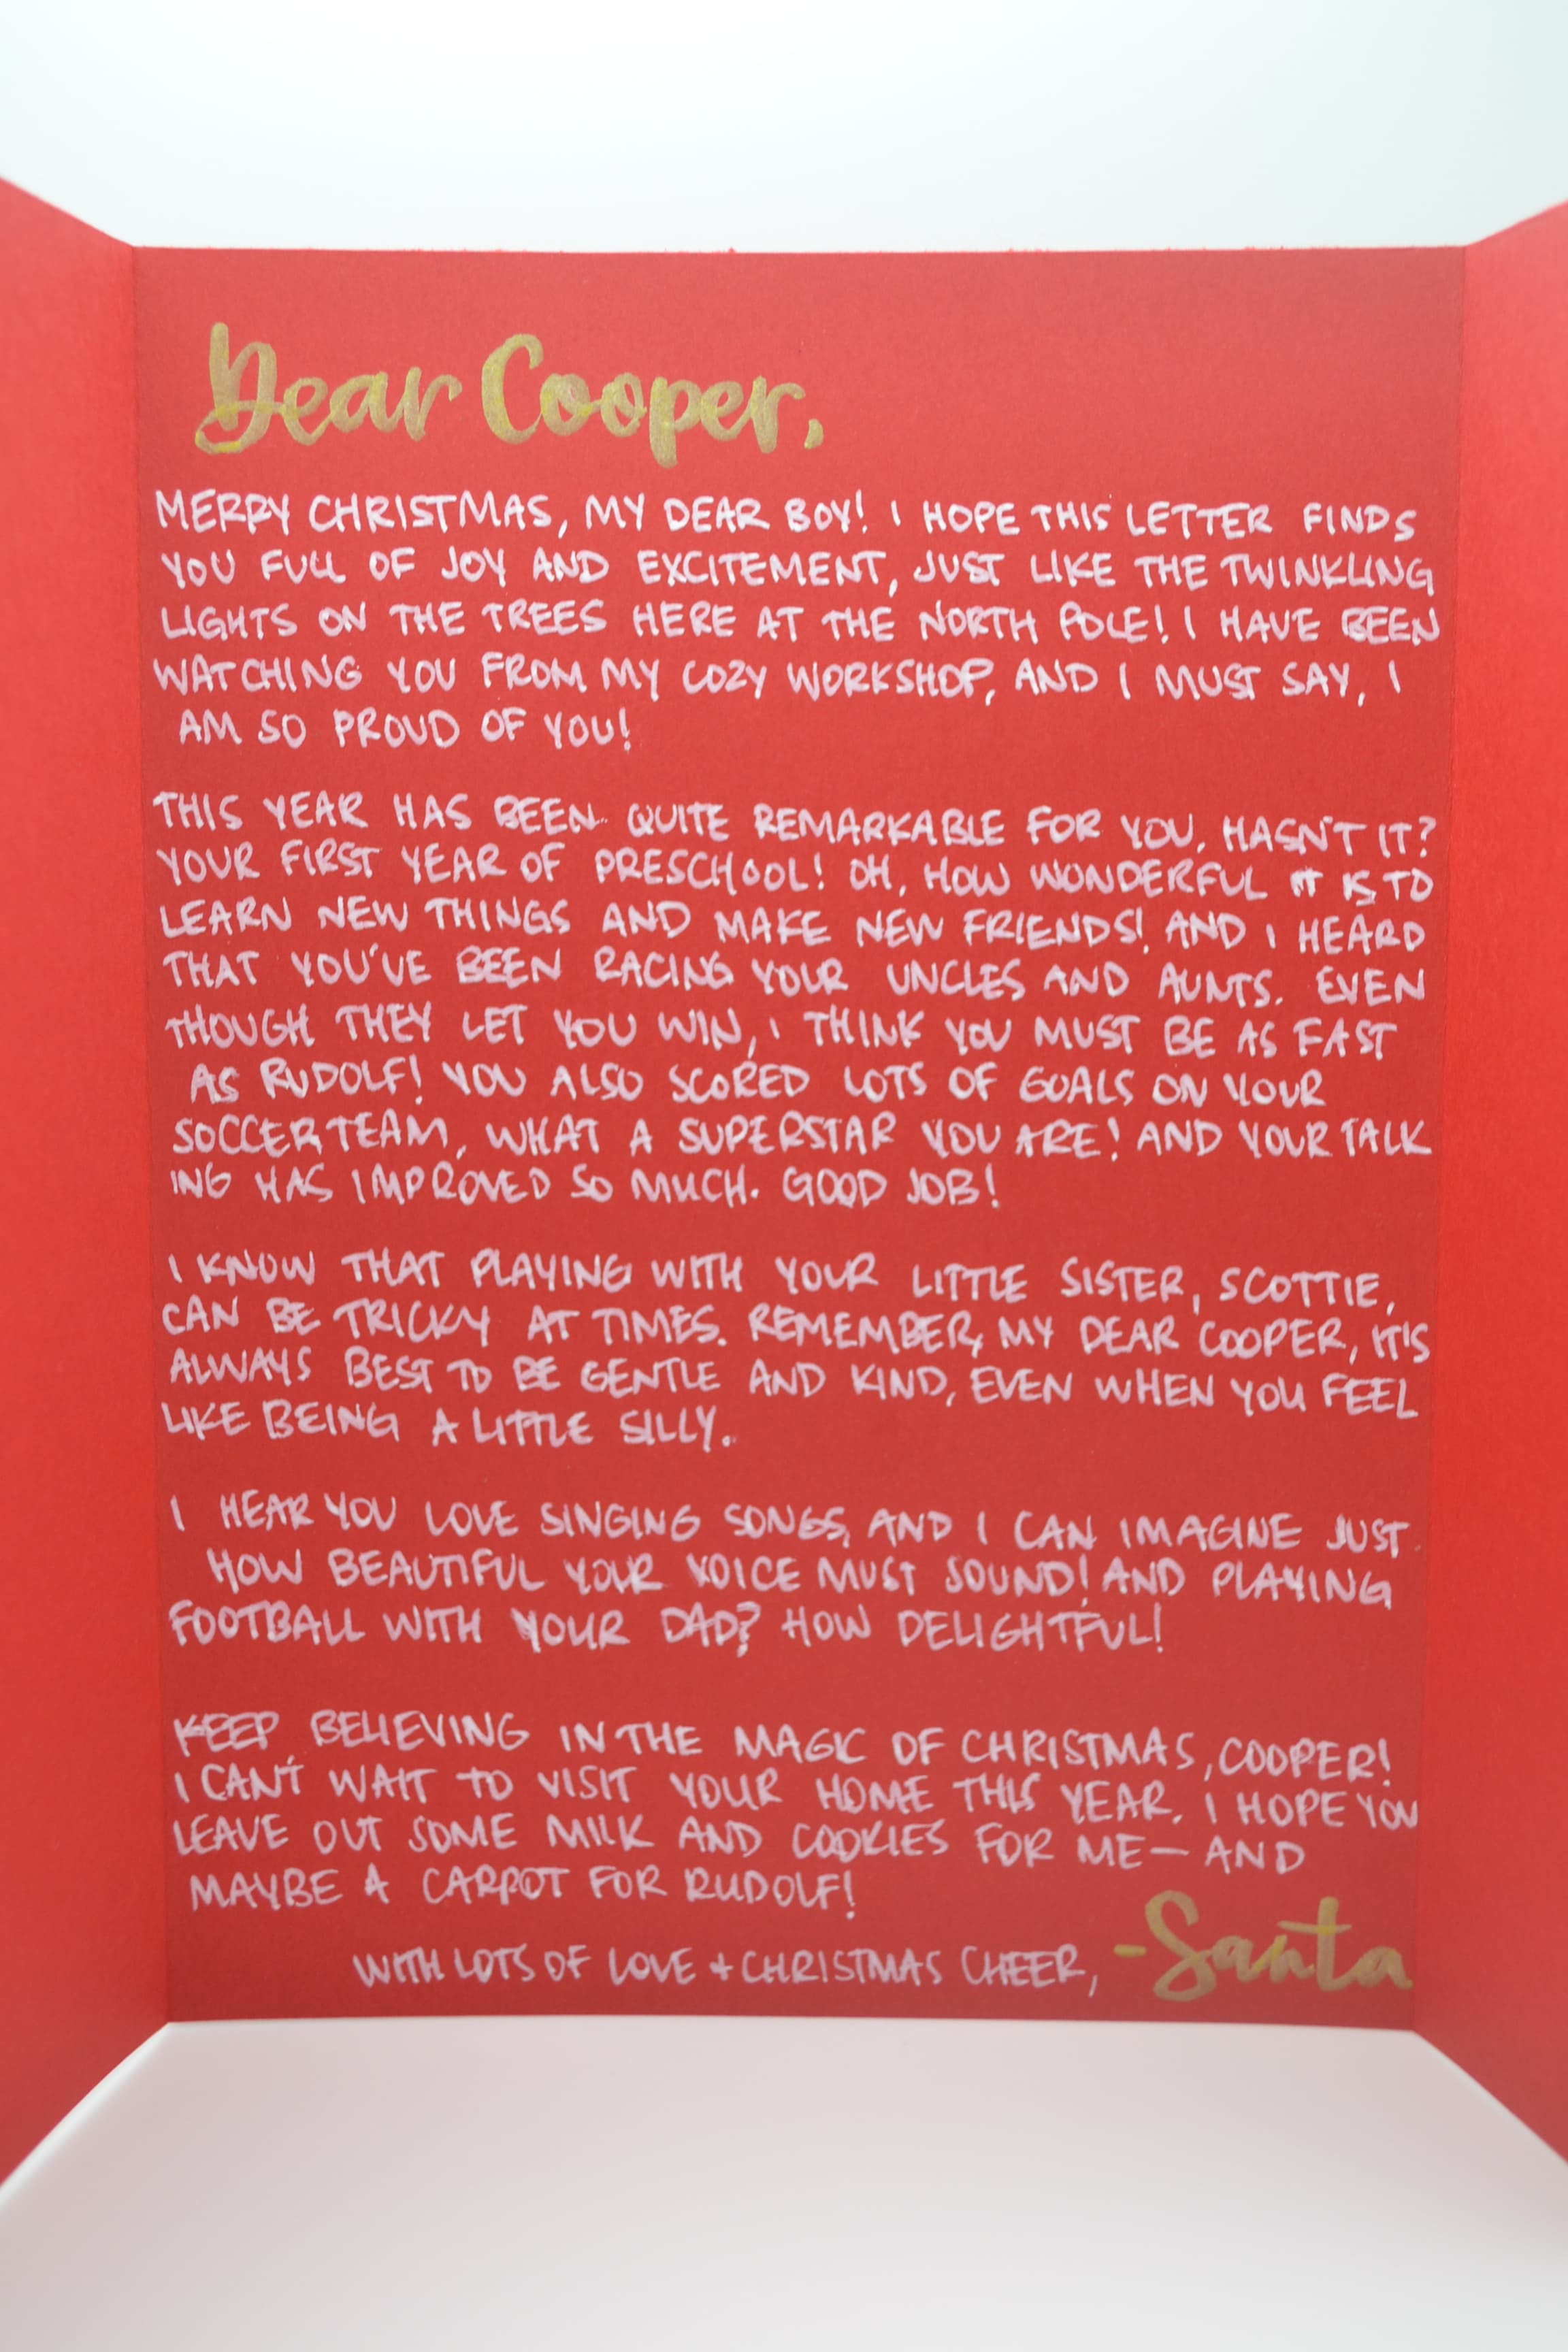 Dear Cooper,
MERRY CHRISTMAS, MY DEAR BOY! I HOPE THIS LETTER FINDS
YOU FULL OF JOY AND EXCITEMENT, JUST LIKE THE TWINKLING
LIGHTS ON THE TREES HERE AT THE NORTH POLE! I HAVE BEEN
WATCHING YOU FROM MY COZY WORKSHOP, AND I MUST SAY, I
AM SO PROUD OF YOU!
THIS YEAR HAS BEEN QUITE REMARKABLE FOR YOU, HASN'T IT?
YOUR FIRST YEAR OF PRESCHOOL! OH, HOW WONDERFUL IT IS TO
LEARN NEW THINGS AND MAKE NEW FRIENDS! AND I HEARD
THAT YOU'VE BEEN RACING YOUR UNCLES AND AUNTS. EVEN
THOUGH THEY LET YOU WIN, I THINK YOU MUST BE AS FAST
AS RUDOLF! YOU ALSO SCORED LOTS OF GOALS ON YOUR
SOCCER TEAM, WHAT A SUPERSTAR YOU ARE! AND YOUR TALK
ING HAS IMPROVED SO MUCH. GOOD JOB!
I KNOW THAT PLAYING WITH YOUR LITTLE SISTER, SCOTTIE,
CAN BE TRICKY AT TIMES. REMEMBER, MY DEAR COOPER, IT'S
ALWAYS BEST TO BE GENTLE AND KIND, EVEN WHEN YOU FEEL
LIKE BEING A LITTLE SILLY.
I HEAR YOU LOVE SINGING SONGS, AND I CAN IMAGINE JUST
HOW BEAUTIFUL YOUR VOICE MUST SOUND! AND PLAYING
FOOTBALL WITH YOUR DAD? HOW DELIGHTFUL!
KEEP BELIEVING IN THE MAGIC OF CHRISTMAS, COOPER!
I CAN'T WAIT TO VISIT YOUR HOME THIS YEAR. I HOPE YOU
LEAVE OUT SOME MILK AND COOKIES FOR ME — AND
MAYBE A CARROT FOR RUDOLF!
WITH LOTS OF LOVE + CHRISTMAS CHEER, -Santa